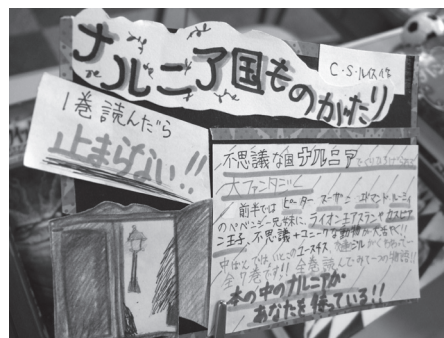 ナルニア国ものがたり
C・S・ルイス作
1巻読んだら
止まらない!!
不思議な国ナルニア
大ファンタジー
前半では ピーター スーザン エドマンド ルーシィ
のペベンシー兄妹に、ライオン王アスランや カスピア
ン王子、不思議+ユニークな動物が大活やく!!
いとこのユースチス
全7巻です!! 全巻読んでみて一つの物語!!
本の中のナルニアが
あなたを待っている!!